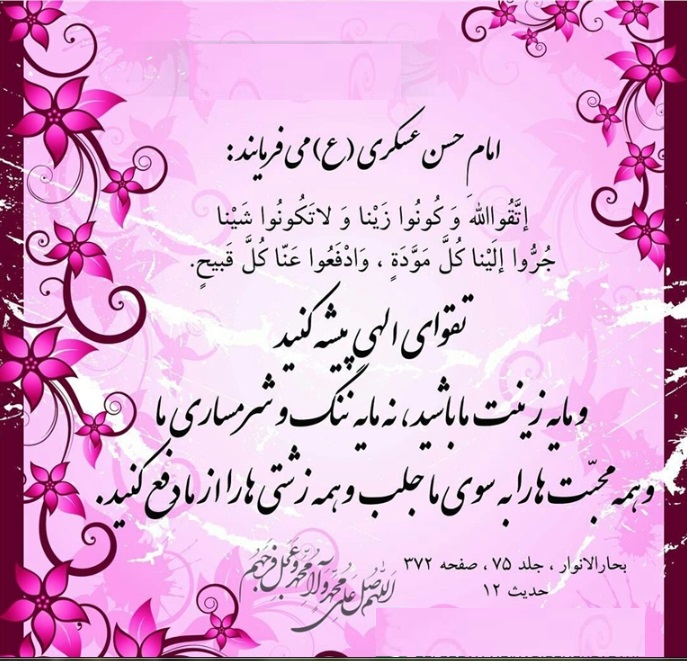 امام حسن عسکری (ع) می فرمایند:
إتَّقُوااللهَ وَ کُونُوا زَیْنا وَ لاتَکُونُوا شَیْنا
جُرُّوا إلَیْنا کُلَّ مَوَّدَةٍ ، وَادْفَعُوا عَنّا کُلَّ قَبیحٍ.
تقوای الهی پیشه کنید
و مایه زینت ما باشید، نه مایه ننگ و شرمساری ما
و همه محبّت ها را به سوی ما جلب و همه زشتی ها را از ما دفع کنید.
بحارالانوار ، جلد ۷۵ ، صفحه ۳۷۲
حدیث ۱۲
اللهم صل علی محمد وآل محمد وعجل فرجهم